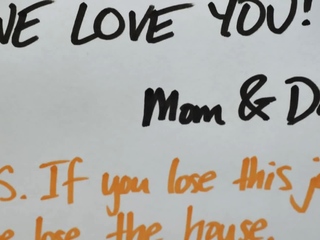 WE LOVE YOU!
Mom & D
S. If you lose this j
e lose the house.